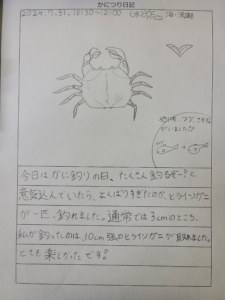 かにつり日記
2024.7.31. 11:30~12:00
今日はかに釣りの日。たくさん釣るぞー!と
意気込んでいたら、がんばりすぎたのか、ヒライソガニ
が一匹、釣れました。通常では3cmのところ、
私が釣ったのは、10cm強のヒライソガニが取れました。
とても楽しかったです!!